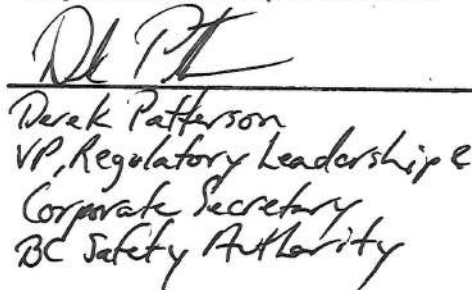 Derek Patterson
VP, Regulatory Leadership &
Corporate Secretary
BC Safety Authority